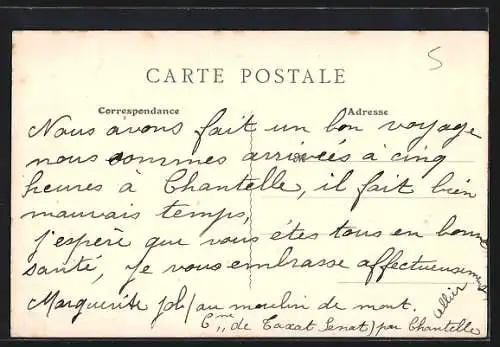 5
CARTE POSTALE
Correspondance
Adresse
Nous avons fait un bon voyage
nous sommes arrivées à cinq
heures à Chantelle, il fait bien
mauvais temps,
j'espère que vous êtes tous en bonne
santé, je vous embrasse affectueusement,
Marguerite Job (au moulin de mont.
Cne de Taxat Senat) par Chantelle
allier